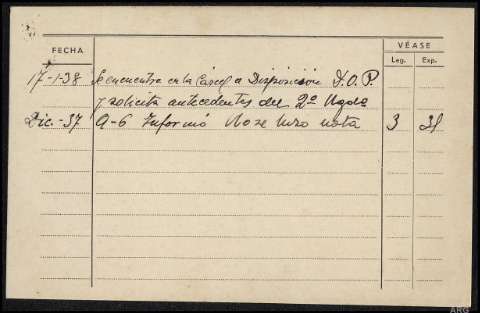 FECHA
VÉASE
Leg. Exp.
17-1-38 Se encuentra en la Cárcel a Disposición D.O.P.
y solicita antecedentes del 2º Ngdo
Dic.-37 A-6 Informó No se hizo nota 3 31
ARG